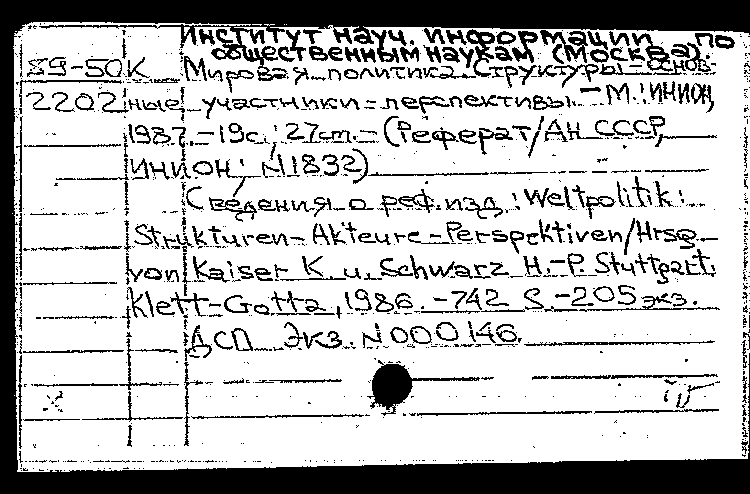 институт науч. информации по
общественным наукам (Москва).
89-50К Мировая политика. Структуры - основ-
2202 ные участники - перспективы. - М.: ИНИОН,
1987. - 19с.; 27cm. - (Реферат/Ан СССР,
ИНИОН; N1832)
Сведения о реф. изд.: Weltpolitik:
Strukturen - Akteure - Perspektiven/Hrsg.
von Kaiser K. u. Schwarz H.-P. Stuttgart:
Klett-Gotta, 1986. - 742 S. - 205 экз.
ДСП Экз. N000146.